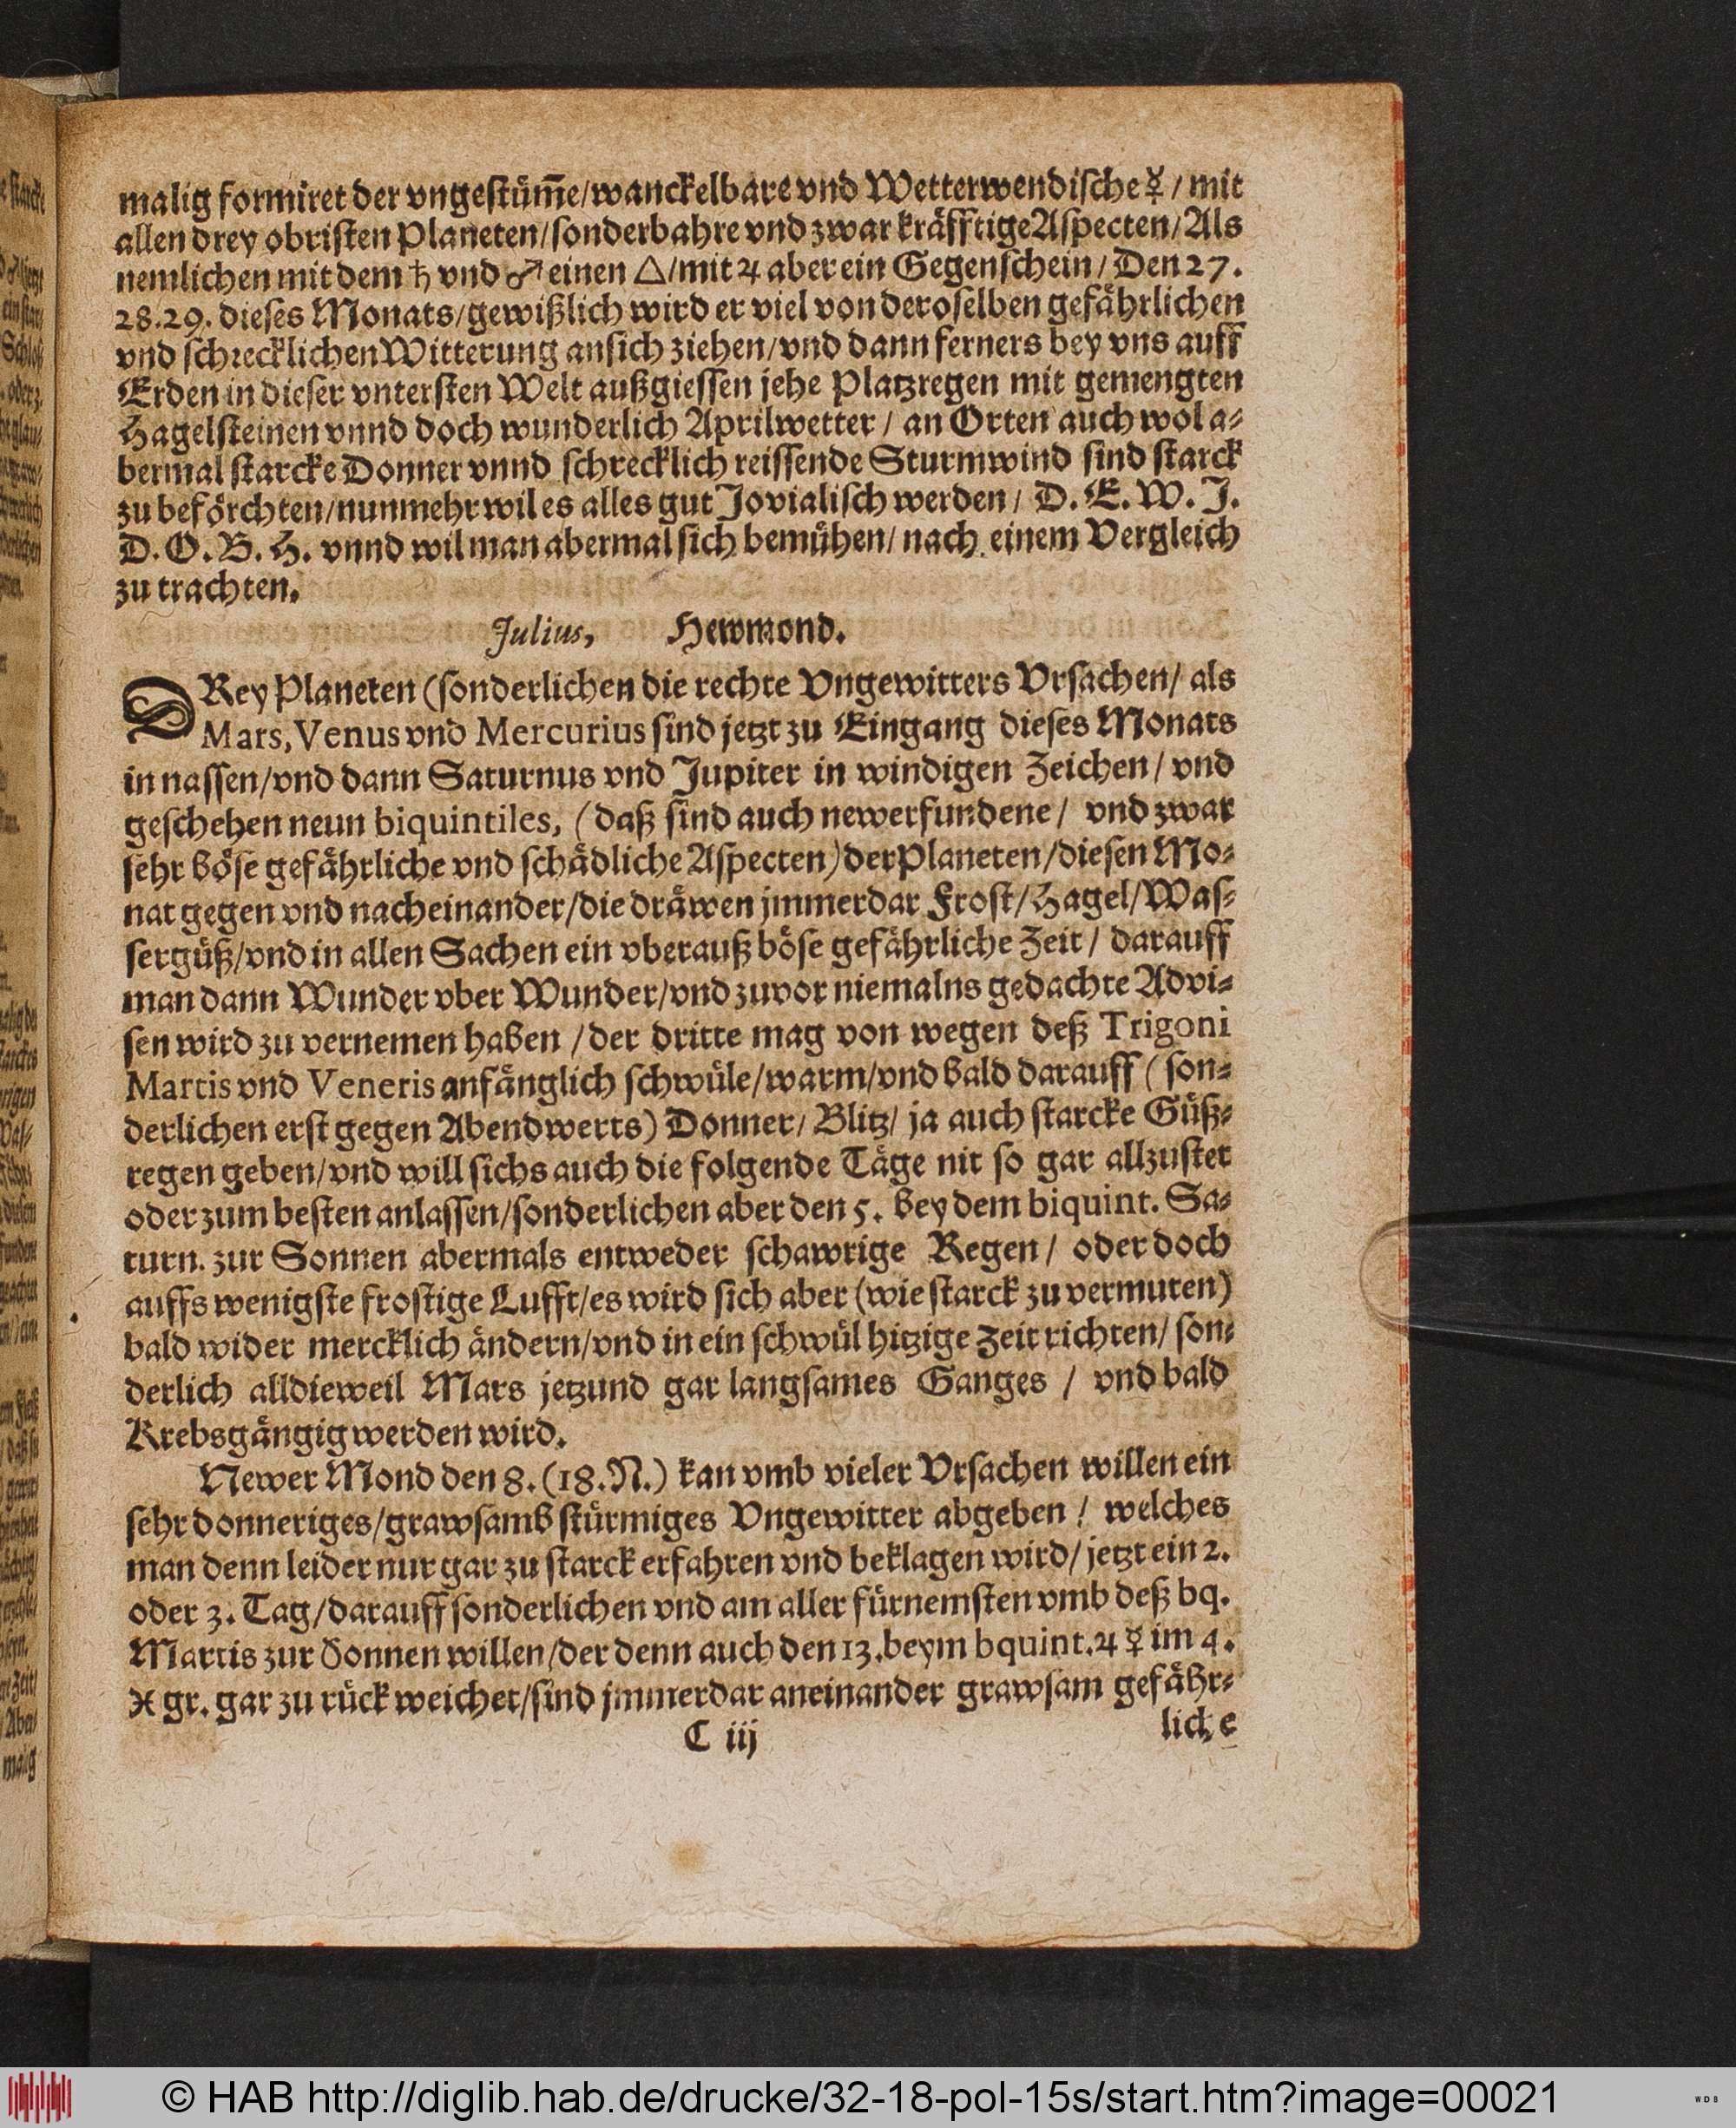 malig formiret der vngestüm̃e/wanckelbare vnd Wetterwendische ☿ / mit
allen drey obristen Planeten/sonderbahre vnd zwar kräfftige Aspecten/Als
nemlichen mit dem ♄ vnd ♂ einen △/mit ♃ aber ein Gegenschein/ Den 27.
28.29. dieses Monats/gewißlich wird er viel von deroselben gefährlichen
vnd schrecklichen Witterung an sich ziehen/vnd dann ferners bey vns auff
Erden in dieser vntersten Welt außgiessen jehe Platzregen mit gemengten
Hagelsteinen vnnd doch wunderlich Aprilwetter / an Orten auch wol a-
bermal starcke Donner vnnd schrecklich reissende Sturmwind sind starck
zu beförchten/nunmehr wil es alles gut Jovialisch werden / D. E. W. J.
D. O. B. H. vnnd wil man abermal sich bemühen/ nach einem Vergleich
zu trachten.
Julius, Hewmond.
DRey Planeten (sonderlichen die rechte Vngewitters Vrsachen/ als
Mars, Venus vnd Mercurius sind jetzt zu Eingang dieses Monats
in nassen/vnd dann Saturnus vnd Jupiter in windigen Zeichen / vnd
geschehen neun biquintiles, (daß sind auch newerfundene / vnd zwar
sehr böse gefährliche vnd schädliche Aspecten) der Planeten/diesen Mo-
nat gegen vnd nacheinander/die dräwen jmmerdar Frost/Hagel/Was-
sergüß/vnd in allen Sachen ein vberauß böse gefährliche Zeit / darauff
man dann Wunder vber Wunder/vnd zuvor niemalns gedachte Advi-
sen wird zu vernemen haben /der dritte mag von wegen deß Trigoni
Martis vnd Veneris anfänglich schwüle/warm/vnd bald darauff ( son-
derlichen erst gegen Abendwerts) Donner/ Blitz/ ja auch starcke Güß-
regen geben/vnd will sichs auch die folgende Täge nit so gar allzustet
oder zum besten anlassen/sonderlichen aber den 5. bey dem biquint. Sa-
turn. zur Sonnen abermals entweder schawrige Regen / oder doch
auffs wenigste frostige Lufft/es wird sich aber (wie starck zu vermuten)
bald wider mercklich ändern/vnd in ein schwül hitzige Zeit richten/ son-
derlich alldieweil Mars jetzund gar langsames Ganges / vnd bald
Krebsgängig werden wird.
Newer Mond den 8. (18. N.) kan vmb vieler Vrsachen willen ein
sehr donneriges/grawsamb stürmiges Vngewitter abgeben / welches
man denn leider nur gar zu starck erfahren vnd beklagen wird/ jetzt ein 2.
oder 3. Tag/darauff sonderlichen vnd am aller fürnemsten vmb deß bq.
Martis zur Sonnen willen/der denn auch den 13. beym bquint. ♃ ☿ im 4.
♓ gr. gar zu rück weichet/sind jmmerdar aneinander grawsam gefähr-
C iij
liche
© HAB http://diglib.hab.de/drucke/32-18-pol-15s/start.htm?image=00021